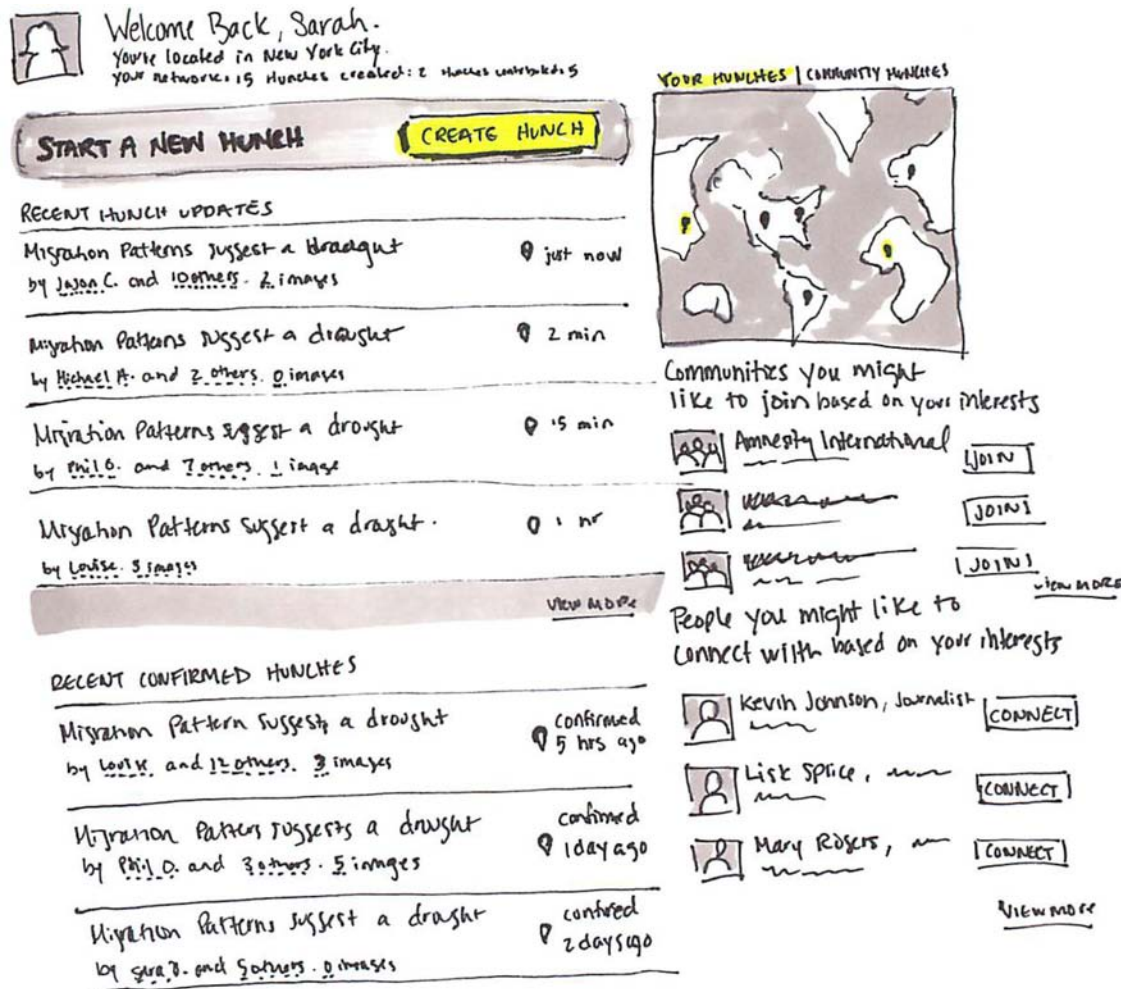 Welcome Back, Sarah.
You're located in New York City.
Your network: 15 Hunches created: 2 Hunches contributed: 5
START A NEW HUNCH
CREATE HUNCH
RECENT HUNCH UPDATES
Migration Patterns suggest a
just now
by Jason C. and 10 others. 2 images
Migration Patterns suggest a drought
2 min
by Michael A. and 2 others. 0 images
Migration Patterns suggest a drought
15 min
by Phil O. and 7 others. 1 image
Migration Patterns suggest a drought.
1 hr
by Louise. 3 images
VIEW MORE
RECENT CONFIRMED HUNCHES
Migration Pattern suggests a drought
confirmed
5 hrs ago
by Louise and 12 others. 3 images
Migration Pattern suggests a drought
confirmed
1 day ago
by Phil O. and 3 others. 5 images
Migration Patterns suggest a drought
2 days ago
by Sara and 5 others. 0 images
YOUR HUNCHES | COMMUNITY HUNCHES
Communities you might
like to join based on your interests
Amnesty International
JOIN
JOIN
JOIN
VIEW MORE
People you might like to
connect with based on your interests
Kevin Johnson, Journalist
CONNECT
Lisk Splice,
CONNECT
Mary Rogers,
CONNECT
VIEW MORE